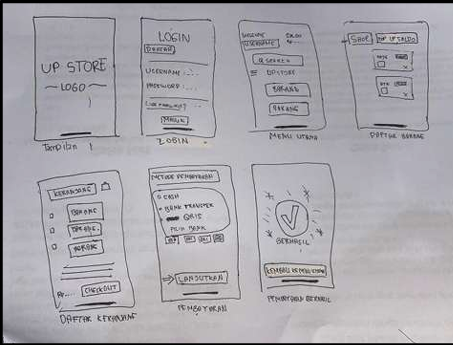 UP STORE
~ LOGO ~
Tampilan 1
LOGIN
USERNAME :
PASSWORD :
MASUK
LOGIN
WELCOME
USERNAME
SEARCH
UP STORE
BARANG
BARANG
MENU UTAMA
SHOP
DAFTAR BARANG
KERANJANG
BARANG
BARANG
BARANG
CHECKOUT
DAFTAR KERANJANG
METODE PEMBAYARAN
CASH
BANK TRANSFER
QRIS
PILIH BANK
LANJUTKAN
PEMBAYARAN
BERHASIL
KEMBALI KE MENU UTAMA
PEMBAYARAN BERHASIL